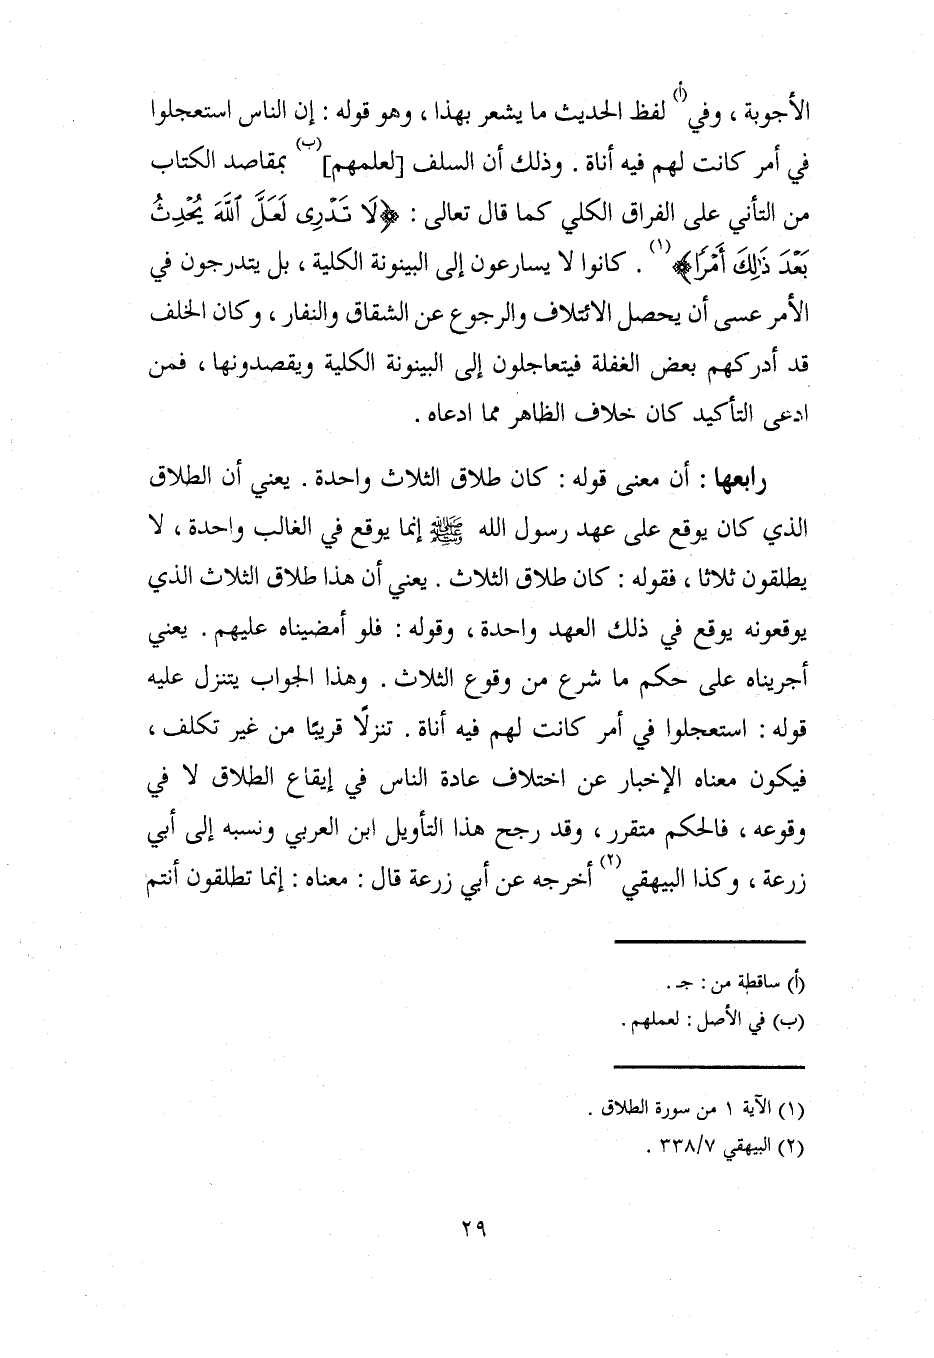 الأجوبة ، وفي(أ) لفظ الحديث ما يشعر بهذا ، وهو قوله : إن الناس استعجلوا
في أمر كانت لهم فيه أناة . وذلك أن السلف [لعلمهم](ب) بمقاصد الكتاب
من التأني على الفراق الكلي كما قال تعالى : ﴿لَا تَدْرِى لَعَلَّ ٱللَّهَ يُحْدِثُ
بَعْدَ ذَٰلِكَ أَمْرًا﴾(١) . كانوا لا يسارعون إلى البينونة الكلية ، بل يتدرجون في
الأمر عسى أن يحصل الائتلاف والرجوع عن الشقاق والنفار ، وكان الخلف
قد أدركهم بعض الغفلة فيتعاجلون إلى البينونة الكلية ويقصدونها ، فمن
ادعى التأكيد كان خلاف الظاهر مما ادعاه .
رابعها : أن معنى قوله : كان طلاق الثلاث واحدة . يعني أن الطلاق
الذي كان يوقع على عهد رسول الله ﷺ إنما يوقع في الغالب واحدة ، لا
يطلقون ثلاثا ، فقوله : كان طلاق الثلاث . يعني أن هذا طلاق الثلاث الذي
يوقعونه يوقع في ذلك العهد واحدة ، وقوله : فلو أمضيناه عليهم . يعني
أجريناه على حكم ما شرع من وقوع الثلاث . وهذا الجواب يتنزل عليه
قوله : استعجلوا في أمر كانت لهم فيه أناة . تنزلًا قريبًا من غير تكلف ،
فيكون معناه الإخبار عن اختلاف عادة الناس في إيقاع الطلاق لا في
وقوعه ، فالحكم متقرر ، وقد رجح هذا التأويل ابن العربي ونسبه إلى أبي
زرعة ، وكذا البيهقي(٢) أخرجه عن أبي زرعة قال : معناه : إنما تطلقون أنتم
(أ) ساقطة من : جـ .
(ب) في الأصل : لعملهم .
(١) الآية ١ من سورة الطلاق .
(٢) البيهقي ٣٣٨/٧ .
٢٩